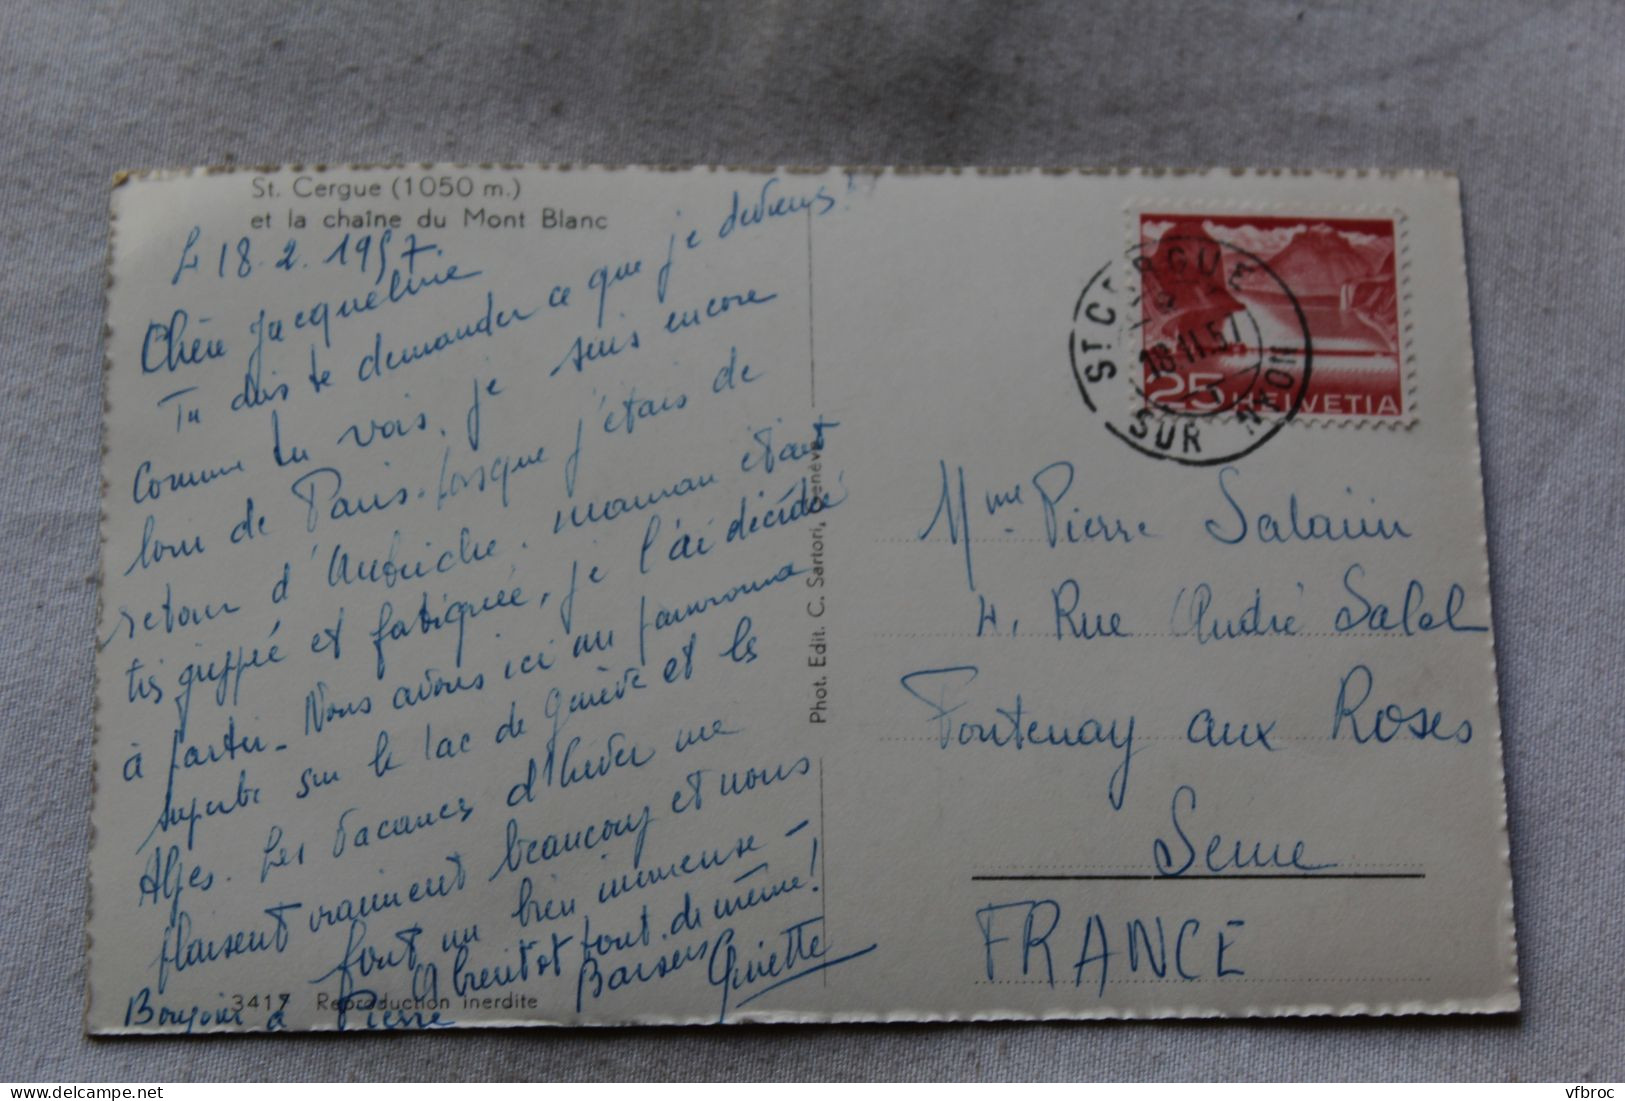 St. Cergue (1050 m.)
et la chaîne du Mont Blanc
Le 18.2.1957.
Chère Jacqueline
Tu dois te demander ce que je deviens!
Comme tu vois, je suis encore
loin de Paris. Lorsque j'étais de
retour d'Autriche, maman étant
très grippée et fatiguée, je l'ai décidée
à partir_ Nous avons ici un panorama
superbe sur le lac de Genève et les
Alpes. Les vacances d'hiver me
plaisent vraiment beaucoup et nous
font un bien immense_
A bientôt tout de même!
Baisers Guiette
Bonjour à Pierre
3417 Reproduction inerdite
Phot. Edit. C. Sartori, Genève
ST CERGUE
18.II.57
SUR NYON
25 HELVETIA
Mme Pierre Salaün
4, Rue André Salel
Fontenay aux Roses
Seine
FRANCE
vfbroc